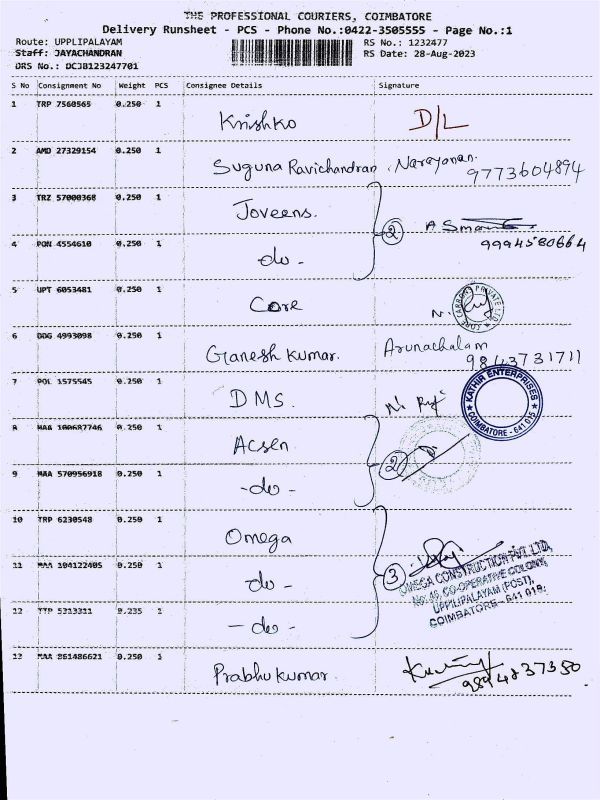 THE PROFESSIONAL COURIERS, COIMBATORE
Delivery Runsheet - PCS - Phone No.:0422-3505555 - Page No.:1
Route: UPPLIPALAYAM
RS No.: 1232477
Staff: JAYACHANDRAN
RS Date: 28-Aug-2023
DRS No.: DCJB123247701
S No Consignment No Weight PCS Consignee Details Signature
1 TRP 7560565 0.250 1 Krishko D/L
2 AMD 27329154 0.250 1 Suguna Ravichandran Narayanan.
9773604894
3 TRZ 57000368 0.250 1 Joveens.
② 9994580664
4 PON 4554610 0.250 1 do -
5 UPT 6053481 0.250 1 Core
CORE CARBONS PRIVATE LTD
6 DDG 4993098 0.250 1 Ganesh kumar. Arunachalam
9843731711
7 POL 1575545 0.250 1 DMS.
KATHIR ENTERPRISES
COIMBATORE - 641 015
8 MAA 100687746 0.250 1 Acsen
②
9 MAA 570956918 0.250 1 -do -
10 TRP 6230548 0.250 1 Omega
11 MAA 104122405 0.250 1 do -
③ OMEGA CONSTRUCTION PVT LTD,
No: 49, CO-OPERATIVE COLONY,
UPPILIPALAYAM (POST),
COIMBATORE - 641 015.
12 TTP 5313311 0.235 1 - do -
13 MAA 861486621 0.250 1 Prabhu kumar.
9894837350